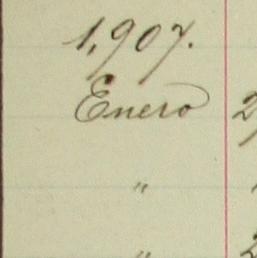 1,907.
Enero 2
"
" 2